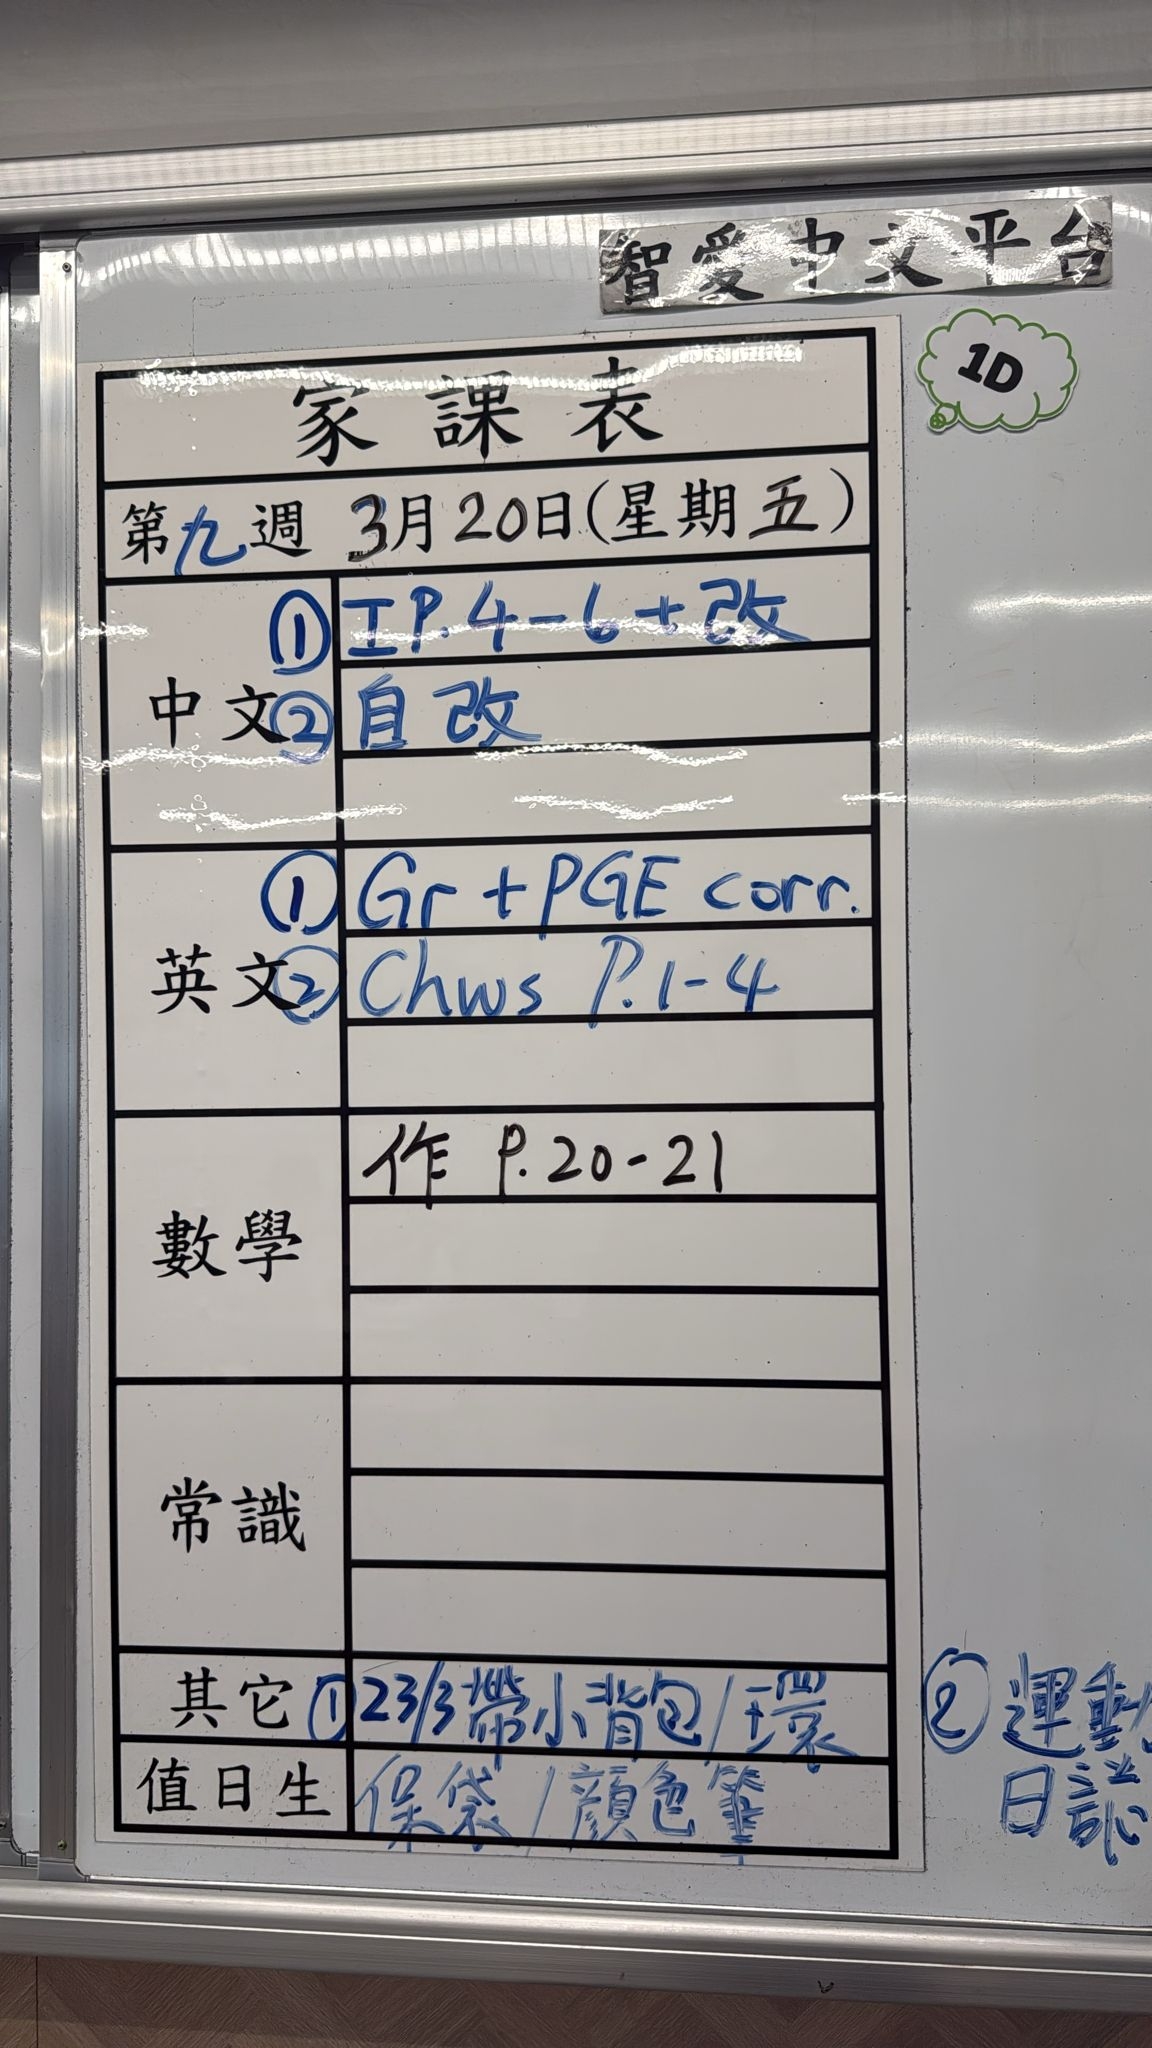 智愛中文平台
1D
家課表
第九週 3月20日(星期五)
中文
① 工P.4-6+改
② 自改
英文
① Gr + PGE corr.
② Chws P.1-4
數學
作 P.20-21
常識
其它
① 23/3帶小背包/環
保袋/顏色筆
值日生
② 運動
日誌